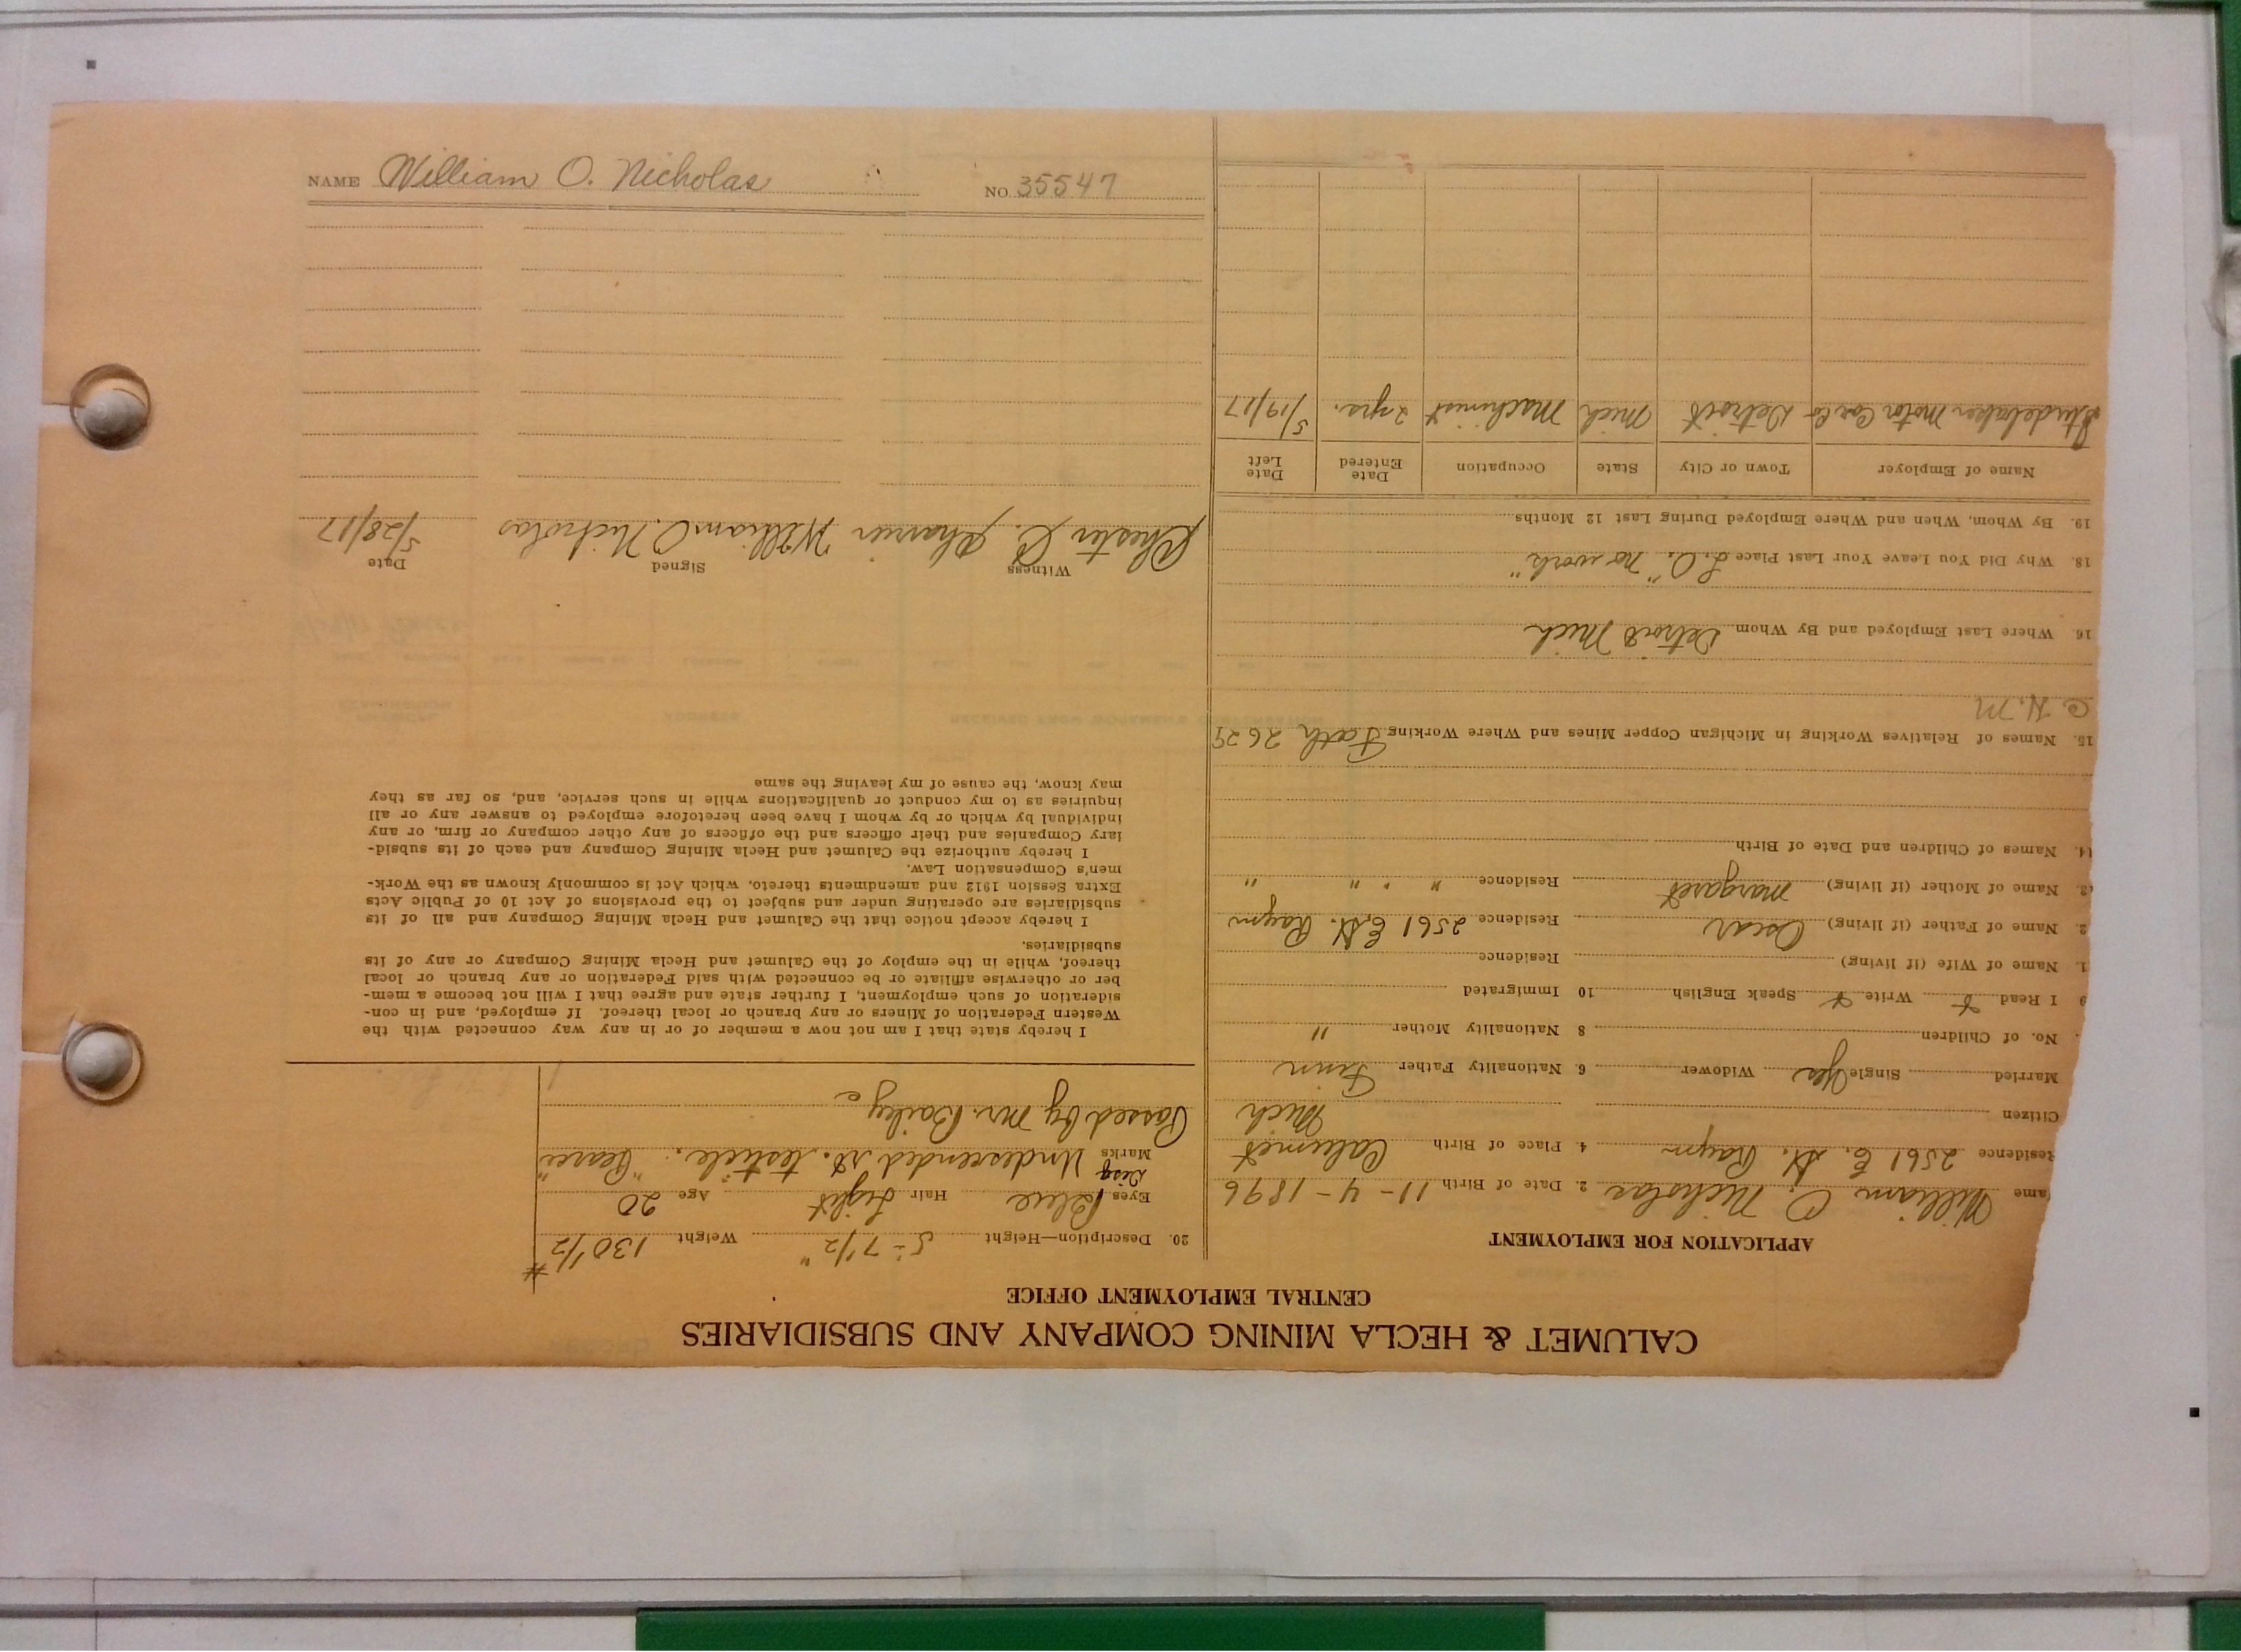 CALUMET & HECLA MINING COMPANY AND SUBSIDIARIES
CENTRAL EMPLOYMENT OFFICE
APPLICATION FOR EMPLOYMENT
ame William O. Nicholas 2. Date of Birth 11-4-1896
Residence 2561 E. St. Raym 4. Place of Birth Calumet
Citizen Mich
Married Single Yes Widower 6. Nationality Father Finn
No. of Children 8 Nationality Mother "
9 I Read Write Speak English 10 Immigrated
1. Name of Wife (if living) Residence
2. Name of Father (if living) Oscar Residence 2561 E. St. Raym
3. Name of Mother (if living) Margaret Residence " " "
14. Names of Children and Date of Birth
15. Names of Relatives Working in Michigan Copper Mines and Where Working Fath 2629
C. H. M
16. Where Last Employed and By Whom Detroit Mich
18. Why Did You Leave Your Last Place L.O. "no work"
19. By Whom, When and Where Employed During Last 12 Months
Name of Employer Town or City State Occupation Date Entered Date Left
Studebaker Motor Car Co Detroit Mich Machinist 2 yrs. 5/19/17
20. Description—Height 5-7 1/2" Weight 130 1/2 #
Eyes Blue Hair Light Age 20
Marks Undescended rt. testicle. "Pearce"
Passed by Mr. Bailey
I hereby state that I am not now a member of or in any way connected with the
Western Federation of Miners or any branch or local thereof. If employed, and in con-
sideration of such employment, I further state and agree that I will not become a mem-
ber or otherwise affiliate or be connected with said Federation or any branch or local
thereof, while in the employ of the Calumet and Hecla Mining Company or any of its
subsidiaries.
I hereby accept notice that the Calumet and Hecla Mining Company and all of its
subsidiaries are operating under and subject to the provisions of Act 10 of Public Acts
Extra Session 1912 and amendments thereto, which Act is commonly known as the Work-
men's Compensation Law.
I hereby authorize the Calumet and Hecla Mining Company and each of its subsid-
iary Companies and their officers and the officers of any other company or firm, or any
individual by which or by whom I have been heretofore employed to answer any or all
inquiries as to my conduct or qualifications while in such service, and, so far as they
may know, the cause of my leaving the same
Witness Signed Date
Chester C. William O. Nicholas 5/28/17
NAME William O. Nicholas NO. 35547